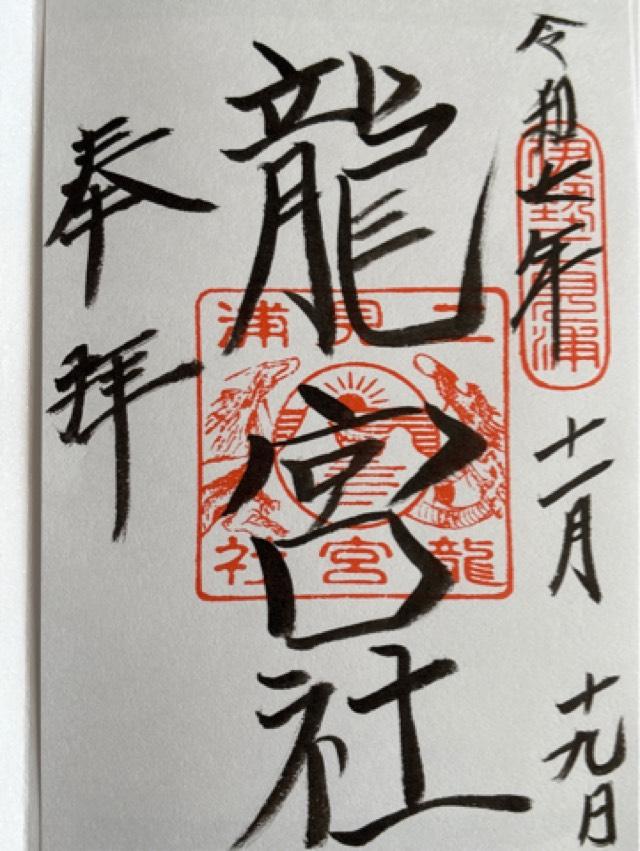 令和七年十一月十九日
伊勢二見浦
龍宮社
二見浦
龍宮社
奉拝